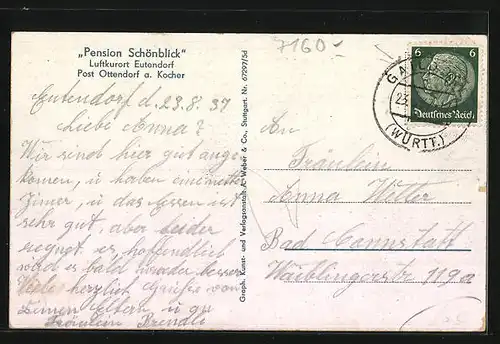 „Pension Schönblick"
Luftkurort Eutendorf
Post Ottendorf a. Kocher
7160
Eutendorf d. 23.8.37
Liebe Anna!
Wir sind hier gut ange
komen, u haben eine nette
Zimer, u das Essen ist
sehr gut, aber leider
regngt es, hoffendlich
wird es bald wieder besser
Viele herzlich Grüße von
Deinen Eltern, u gr
Fräulein Brendle
Graph. Kunst- und Verlagsanstalt A. Weber & Co., Stuttgart. Nr. 67297/5d
6 6
Deutsches Reich
GAIL
23.
(WÜRTT.)
An
Fräulein
Anna
Bad Cannstatt
Waiblingerstr 119a